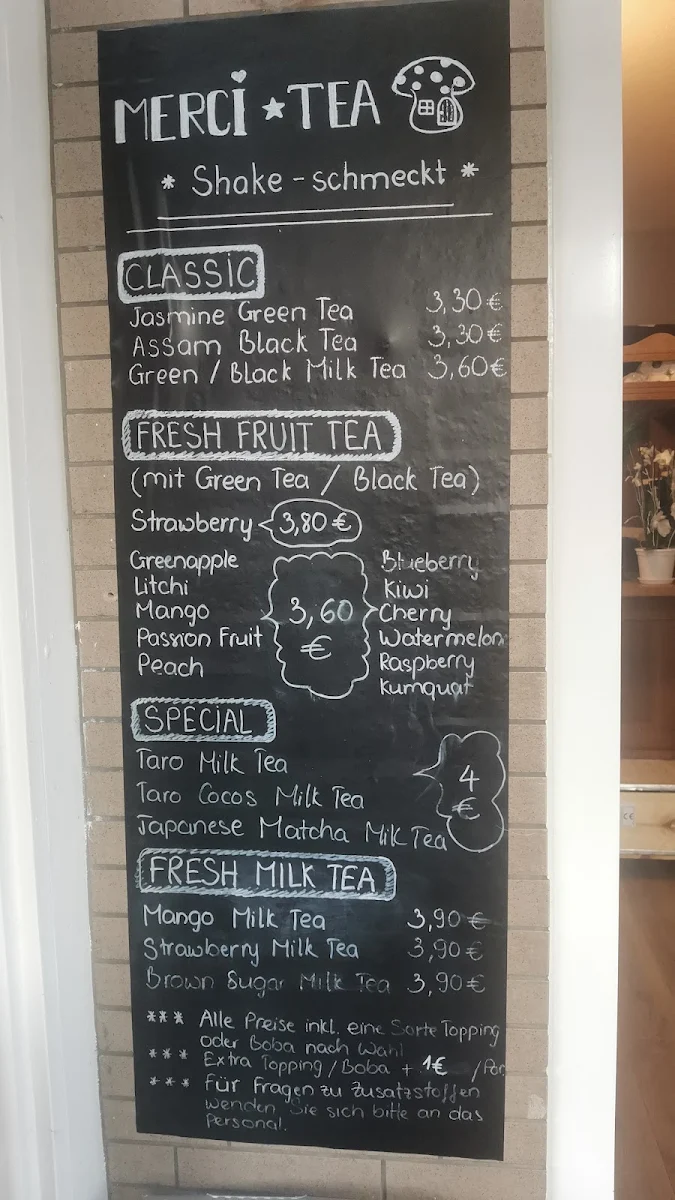 MERCI ★ TEA
* Shake - schmeckt *
CLASSIC
Jasmine Green Tea 3,30 €
Assam Black Tea 3,30 €
Green / Black Milk Tea 3,60 €
FRESH FRUIT TEA
(mit Green Tea / Black Tea)
Strawberry 3,80 €
Greenapple
Litchi
Mango
Passion Fruit
Peach
3,60
€
Blueberry
Kiwi
Cherry
Watermelon
Raspberry
Kumquat
SPECIAL
Taro Milk Tea
Taro Cocos Milk Tea
Japanese Matcha Milk Tea
4
€
FRESH MILK TEA
Mango Milk Tea 3,90 €
Strawberry Milk Tea 3,90 €
Brown Sugar Milk Tea 3,90 €
*** Alle Preise inkl. eine Sorte Topping
oder Boba nach Wahl
*** Extra Topping / Boba + 1€ /Por
*** Für Fragen zu Zusatzstoffen
wenden Sie sich bitte an das
Personal.